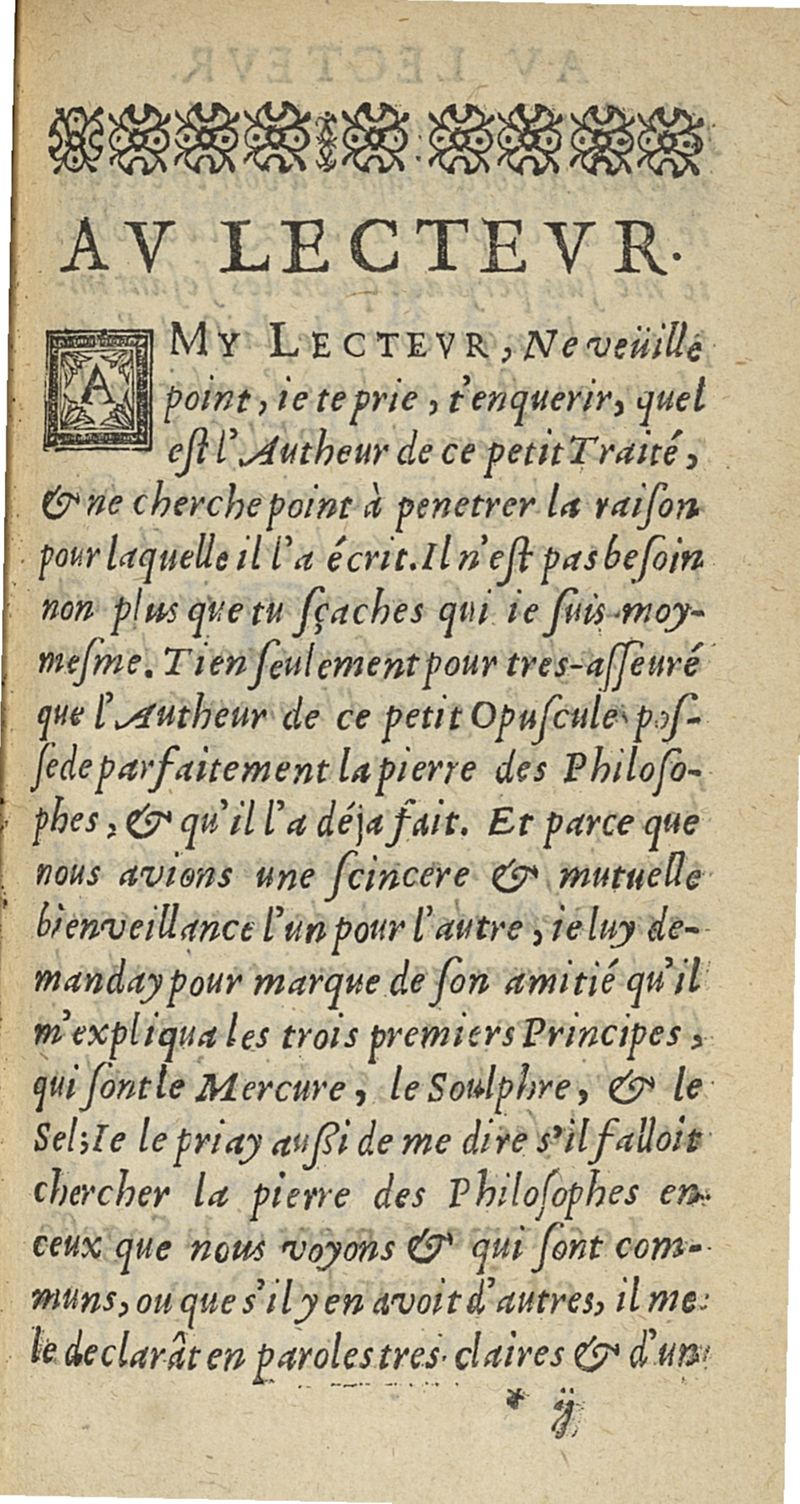 AV LECTEVR.
AMY LECTEVR, Ne veüille
point, ie te prie, t'enquerir, quel
eſt l'Autheur de ce petit Traité,
& ne cherche point à penetrer la raiſon
pour laquelle il l'a écrit. Il n'eſt pas beſoin
non plus que tu ſçaches qui ie ſuis moy-
meſme. Tien ſeulement pour tres-aſſeuré
que l'Autheur de ce petit Opuſcule poſ-
ſede parfaitement la pierre des Philoſo-
phes, & qu'il l'a déja fait. Et parce que
nous avions une ſcincere & mutuelle
bienveillance l'un pour l'autre, ie luy de-
manday pour marque de ſon amitié qu'il
m'expliqua les trois premiers Principes,
qui ſont le Mercure, le Soulphre, & le
Sel; Ie le priay auſſi de me dire s'il falloit
chercher la pierre des Philoſophes en
ceux que nous voyons & qui ſont com-
muns, ou que s'il y en avoit d'autres, il me
le declarât en paroles tres-claires & d'un
* ij